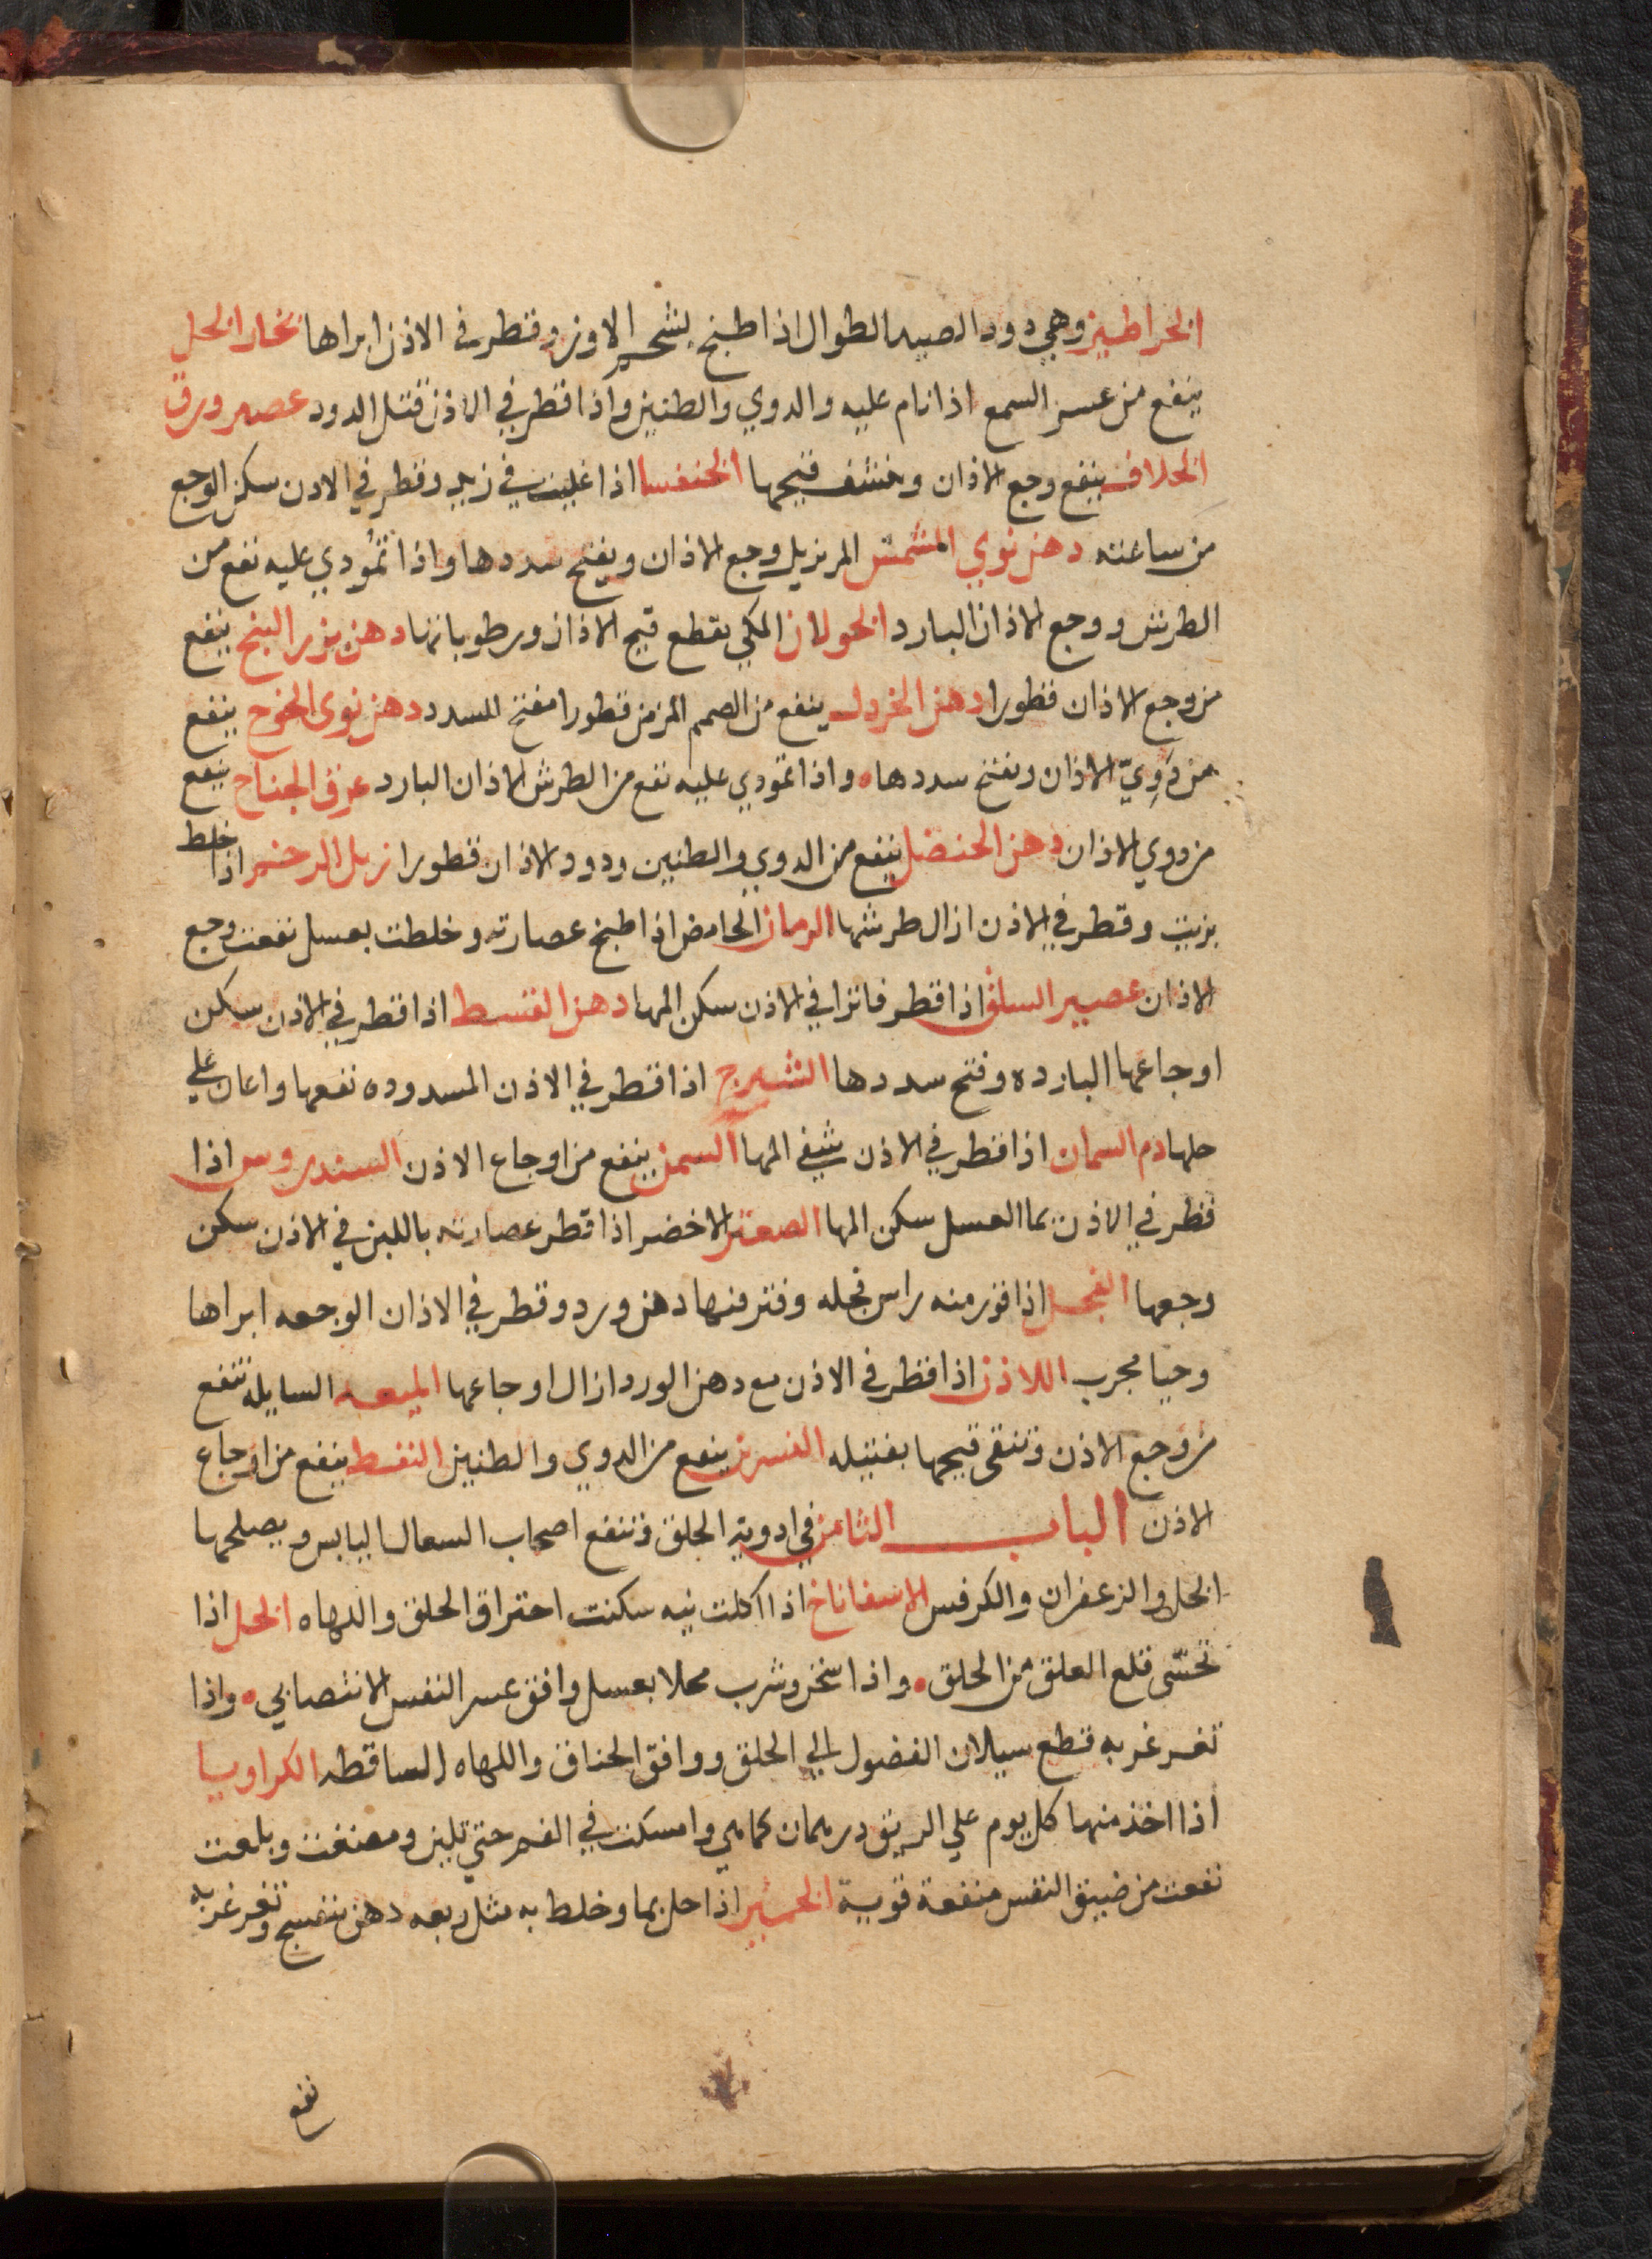 الخراطين وهي دود الصبيه الطوال اذا طبخ بشحم الاوز وقطر في الاذن ابراها بخار الخل
ينفع من عسر السمع اذا نام عليه والدوي والطنين واذا قطر في الاذن قتل الدود عصير ورق
الخلاف ينفع وجع الاذان وينشف قيحها الخنفسا اذا غليت في زيت وقطر في الاذن سكن الوجع
من ساعته دهن نوي المشمش المر يزيل وجع الاذان ويفتح سددها واذا تمودي عليه نفع من
الطرش ووجع الاذان البارد الخولان المكي يقطع قيح الاذان ورطوباتها دهن بزر البنج ينفع
من وجع الاذان قطورا دهن الخردل ينفع من الصمم المزمن قطورا مفتح للسدد دهن نوى الخوخ ينفع
من دَوِيّ الاذان ويفتح سددها واذا تمودي عليه نفع من الطرش الاذان البارد عرق الجناح ينفع
من دوي الاذان دهن الحنضل ينفع من الدوي والطنين ودود الاذان قطورا زبل الرخم اذا خلط
بزيت وقطر في الاذن ازال طرشها الرمان الحامض اذا طبخ عصارته وخلطت بعسل نفعت وجع
الاذان عصير السلق اذا قطر فاترا في الاذن سكن المها دهن القسط اذا قطر في الاذن سكن
اوجاعها البارده وفتح سددها الشيرج اذا قطر في الاذن المسدوده نفعها واعان علي
حلها دم السمان اذا قطر في الاذن يشفي المها السمن ينفع من اوجاع الاذن السندروس اذا
قطر في الاذن بما العسل سكن المها الصعتر الاخضر اذا قطر عصارته باللبن في الاذن سكن
وجعها الفجل اذا قور منه راس فجله وفتر فيها دهن ورد وقطر في الاذان الوجعه ابراها
وحيا مجرب اللاذن اذا قطر في الاذن مع دهن الورد ازال اوجاعها الميعه السايله تنفع
من وجع الاذن وتنقى قيحها بفتيله النسرين ينفع من الدوي والطنين النفط ينفع من اوجاع
الاذن الباب الثامن في ادوية الحلق وتنفع اصحاب السعال اليابس ويصلحها
الخل والزعفران والكرفس الاسفاناخ اذا اكلت نيه سكنت احتراق الحلق واللهاه الخل اذا
تحسّى قلع العلق من الحلق واذا سخن وشرب محلا بعسل وافق عسر النفس الانتصابي واذا
تغرغر به قطع سيلان الفضول الي الحلق ووافق الخناق واللهاه الساقطه الكراويا
اذا اخذ منها كل يوم علي الريق درهمان كما هي وامسكت في الفم حتي تلين ومضغت وبلعت
نفعت من ضيق النفس منفعة قوية الخمير اذا حل بما وخلط به مثل ربعه دهن بنفسج وتغرغر به
نفع